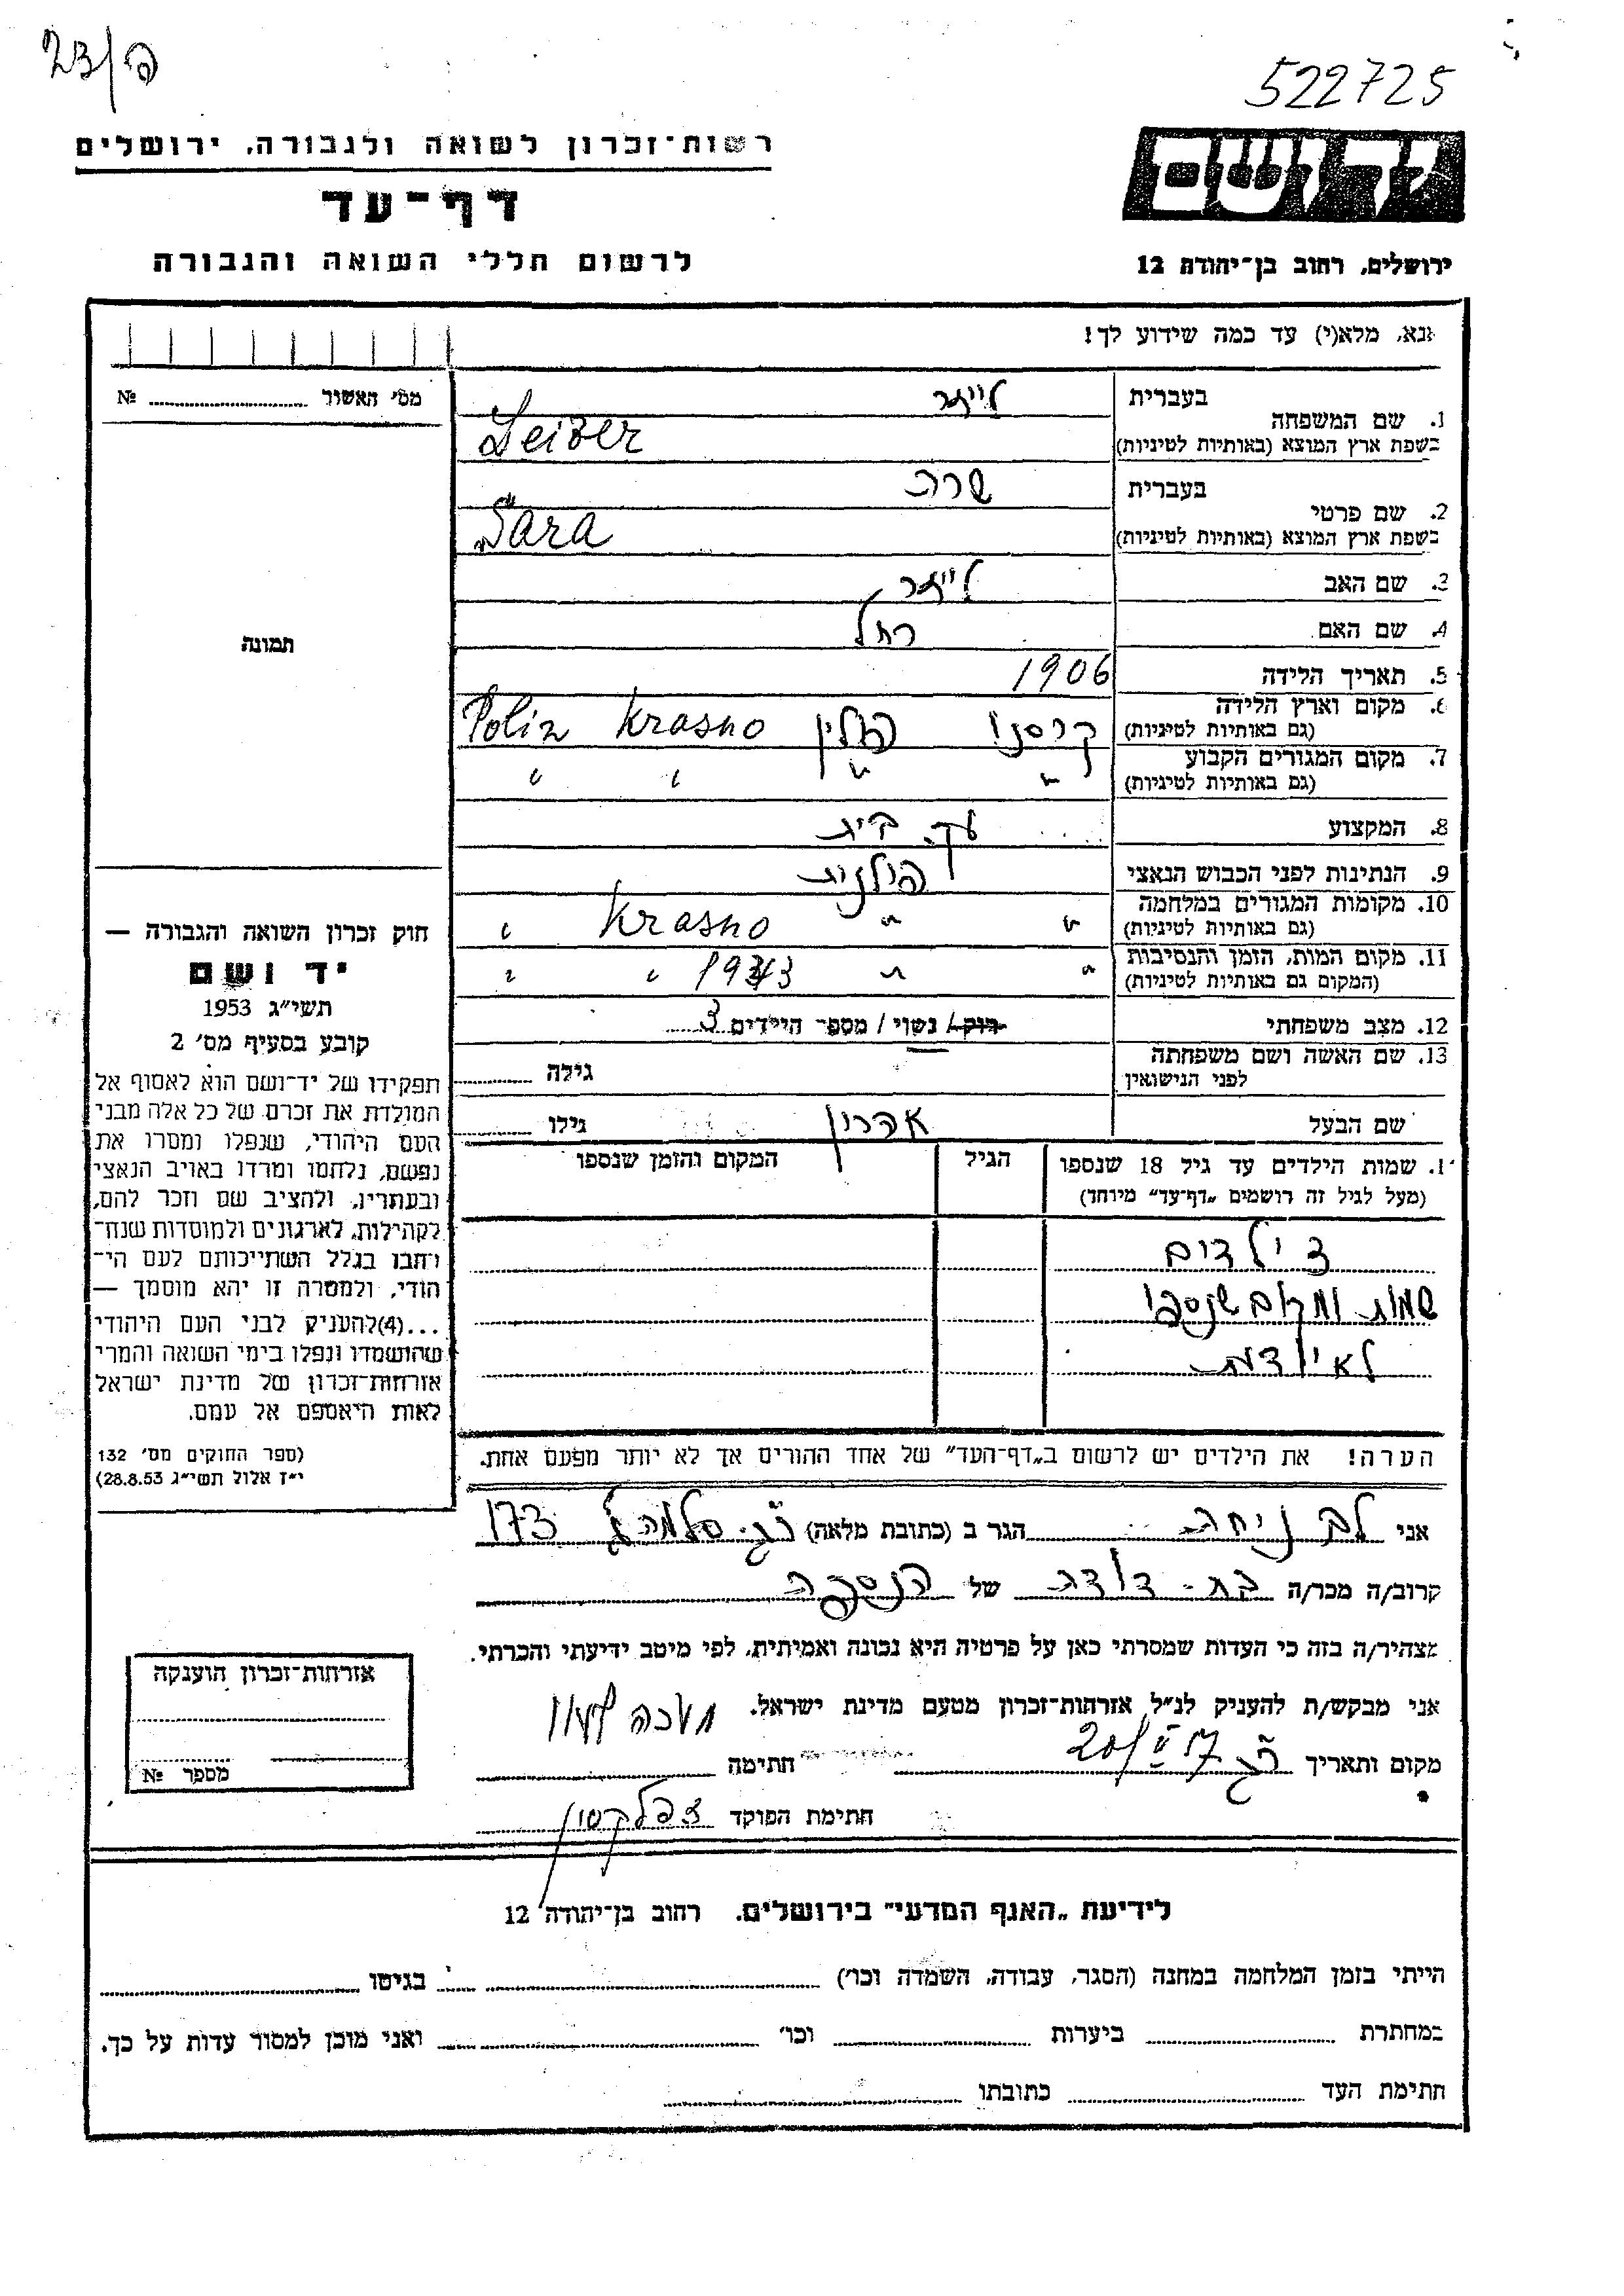 23/פ
522725
רשות־זכרון לשואה ולגבורה, ירושלים
דף־עד
לרשום חללי השואה והגבורה
יד ושם
ירושלים, רחוב בן־יהודה 12
אנא, מלא(י) עד כמה שידוע לך!
מס׳ האשור № ..........
1. שם המשפחה
בעברית
לייזר
בשפת ארץ המוצא (באותיות לטיניות)
Leizer
2. שם פרטי
בעברית
שרה
בשפת ארץ המוצא (באותיות לטיניות)
Sara
3. שם האב לייזר
4. שם האם רחל
5. תאריך הלידה 1906
6. מקום וארץ הלידה
(גם באותיות לטיניות)
קרסנו פולין Krasno Polin
7. מקום המגורים הקבוע
(גם באותיות לטיניות)
" " " "
8. המקצוע עק. בית
9. הנתינות לפני הכבוש הנאצי פולנית
10. מקומות המגורים במלחמה
(גם באותיות לטיניות)
" " Krasno "
11. מקום המות, הזמן והנסיבות
(המקום גם באותיות לטיניות)
" " 1943 " "
12. מצב משפחתי רוק/ נשוי / מספר הילדים 3
13. שם האשה ושם משפחתה
לפני הנישואין
גילה ..........
שם הבעל אהרון גילו ..........
תמונה
חוק זכרון השואה והגבורה —
יד ושם
תשי״ג 1953
קובע בסעיף מס׳ 2
תפקידו של יד־ושם הוא לאסוף אל
המולדת את זכרם של כל אלה מבני
העם היהודי, שנפלו ומסרו את
נפשם, נלחמו ומרדו באויב הנאצי
ובעוזריו, ולהציב שם וזכר להם,
לקהילות, לארגונים ולמוסדות שנח־
רבו בגלל השתייכותם לעם הי־
הודי, ולמטרה זו יהא מוסמך —
...(4)להעניק לבני העם היהודי
שהושמדו ונפלו בימי השואה והמרי
אזרחות־זכרון של מדינת ישראל
לאות היאספם אל עמם.
(ספר החוקים מס׳ 132
י״ז אלול תשי״ג 28.8.53)
1. שמות הילדים עד גיל 18 שנספו
(מעל לגיל זה רושמים „דף־עד״ מיוחד)
הגיל
המקום והזמן שנספו
3 ילדים
שמות ומקום שנספו
לא יודעת
הערה! את הילדים יש לרשום ב„דף־העד״ של אחד ההורים אך לא יותר מפעם אחת.
אני הגר ב (כתובת מלאה) 173
קרוב/ה מכר/ה בת-דודה של הנספה
מצהיר/ה בזה כי העדות שמסרתי כאן על פרטיה היא נכונה ואמיתית, לפי מיטב ידיעתי והכרתי.
אני מבקש/ת להעניק לנ״ל אזרחות־זכרון מטעם מדינת ישראל.
מקום ותאריך 20/V 57 חתימה
חתימת הפוקד
אזרחות־זכרון הוענקה
מספר №
לידיעת „האגף המדעי״ בירושלים. רחוב בן־יהודה 12
הייתי בזמן המלחמה במחנה (הסגר, עבודה, השמדה וכו׳) .......... בגיטו ..........
במחתרת .......... ביערות .......... וכו׳ .......... ואני מוכן למסור עדות על כך.
חתימת העד .......... כתובתו ..........